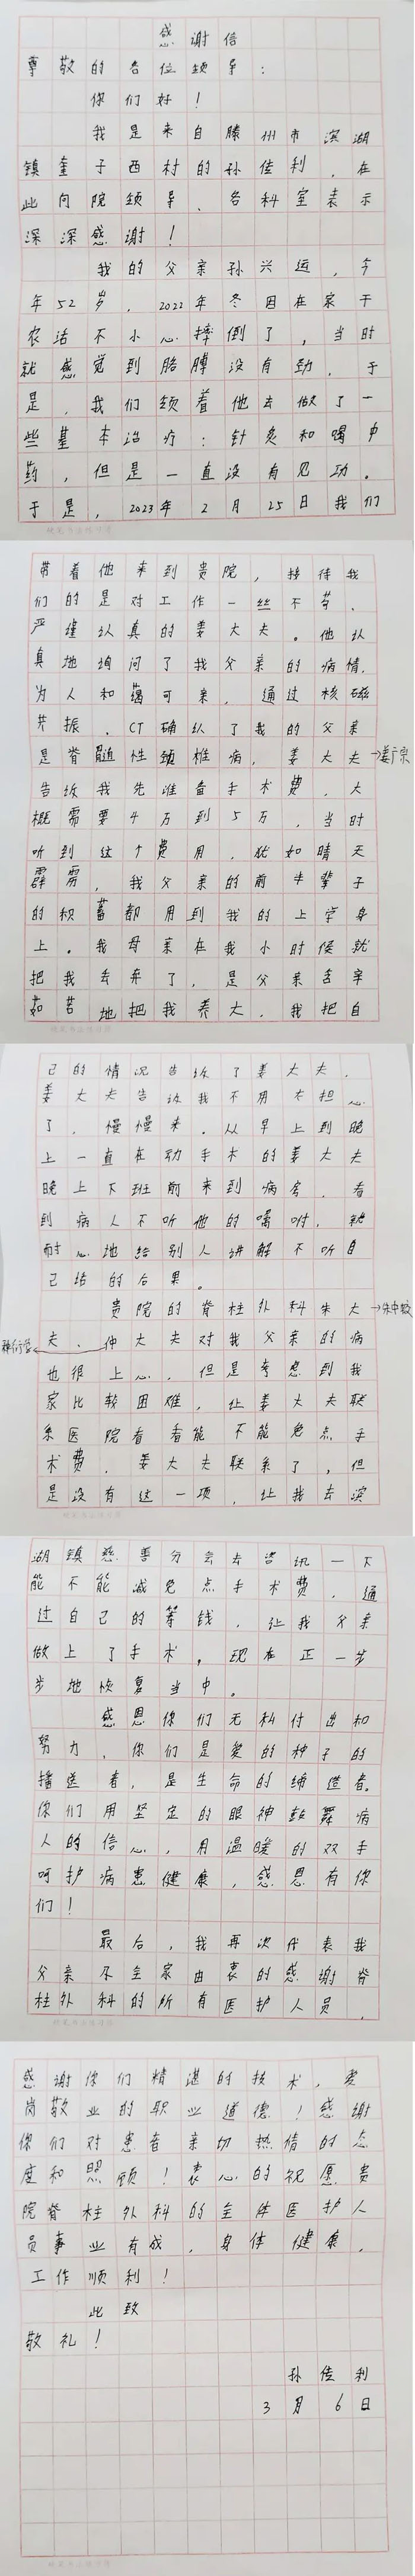 感谢信
尊敬的各位领导：
你们好！
我是来自滕州市滨湖
镇奎子西村的孙传利，在
此向院领导、各科室表示
深深感谢！
我的父亲孙兴运，今
年52岁，2022年冬因在家干
农活不小心摔倒了，当时
就感觉到胳膊没有劲，于
是，我们领着他去做了一
些基本治疗：针灸和喝中
药，但是一直没有见功。
于是，2023年2月25日我们
带着他来到贵院，接待我
们的是对工作一丝不苟、
严谨认真的姜大夫。他认
真地询问了我父亲的病情，
为人和蔼可亲，通过核磁
共振、CT确认了我的父亲
是脊髓性颈椎病，姜大夫
告诉我先准备手术费，大
概需要4万到5万，当时
听到这个费用，犹如晴天
霹雳，我父亲的前半辈子
的积蓄都用到我的上学身
上。我母亲在我小时候就
把我丢弃了，是父亲含辛
茹苦地把我养大，我把自
己的情况告诉了姜大夫，
姜大夫告诉我不用太担心
了，慢慢来，从早上到晚
上一直在动手术的姜大夫
晚上下班前来到病房，看
到病人不听他的嘱咐，就
耐心地给别人讲解不听自
己话的后果。
贵院的脊柱外科朱大→朱中蛟
夫、仲大夫对我父亲的病
也很上心，但是考虑到我
家比较困难，让姜大夫联
系医院看看能不能免点手
术费，姜大夫联系了，但
是没有这一项，让我去滨
湖镇慈善分会去咨讯一下
能不能减免点手术费，通
过自己的筹钱，让我父亲
做上了手术，现在正一步
步地恢复当中。
感恩你们无私付出和
努力，你们是爱的种子的
播送者，是生命的缔造者。
你们用坚定的眼神鼓舞病
人的信心，用温暖的双手
呵护病患健康，感恩有你
们！
最后，我再次代表我
父亲及全家由衷的感谢脊
柱外科的所有医护人员，
感谢你们精湛的技术，爱
岗敬业的职业道德！感谢
你们对患者亲切热情的态
度和照顾！衷心的祝愿贵
院脊柱外科的全体医护人
员事业有成，身体健康，
工作顺利！
此致
敬礼！
孙传利
3月6日